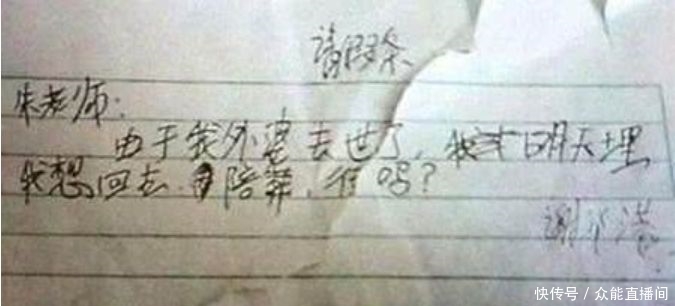 请假条
朱老师:
由于我外婆去世了，我才明天埋
我想回去 陪葬，行吗?
谢
快传号/众能直播间